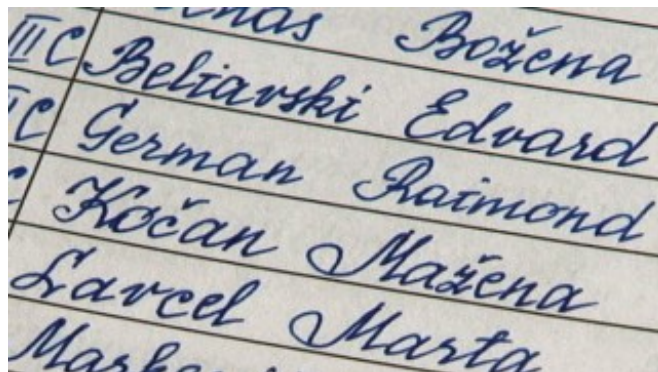 Božena
III C Beliavski Edvard
C German Raimond
Kočan Mažena
Larcel Marta